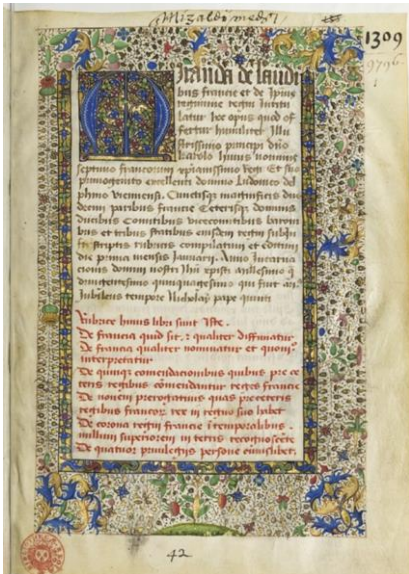 Mizaldi medici
1309
9796
Miranda de laudi
bus francie et de ipius
regimine regni Intitu
latur hoc opus quod of
fertur humiliter Illu
strissimo principi dno
karolo huius nominis
septimo francorum xpianissimo regi Et suo
primogenito excellenti domino Ludovico del
phino viennensi Cunctisque magnificis duo
decim paribus francie Ceterisque dominis
ducibus Comitibus vicecomitibus baroni
bus et tribus statibus eiusdem regni subsin
scriptis rubricis compilatum et editum
die prima mensis Januarii Anno Incarna
cionis domini nostri Ihu xpisti millesimo q
dringentesimo quinquagesimo qui fuit an
Jubileus tempore Nicholay pape quinti
Rubrice huius libri sunt Iste.
De francia quid sit et qualiter diffinatur
De francia qualiter nominatur et quomo
interpretatur
De quinque comendacionibus quibus pre ce
teris regibus comendantur reges francie
De novem prerogativis quas pre ceteris
regibus francorum rex in regno suo habet
De corona regni francie in temporalibus
nullum superiorem in terris recognoscente
De quatuor privilegiis persone cuiuslibet
42